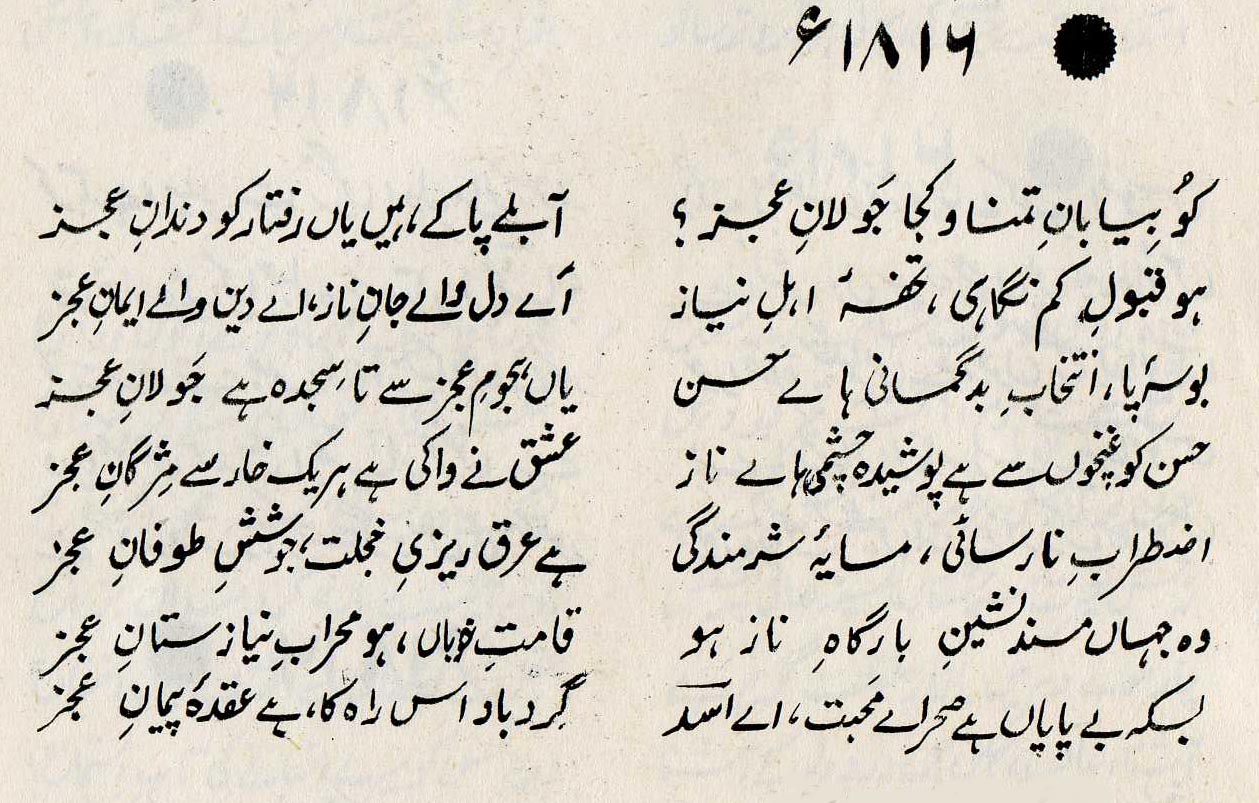 ۱۸۱۶ء
کُو بیابانِ تمنا و کجا جَولانِ عجز ؟ آبلے پا کے، ہیں یاں رفتار کو دندانِ عجز
ہو قبولِ کم نگاہی، تحفۂ اہلِ نیاز اَے دل و اے جانِ ناز، اے دین و اے ایمانِ عجز
بوسۂ پا، انتخابِ بدگمانی ہاے حسن یاں ہجومِ عجز سے تا سجدہ ہے جَولانِ عجز
حسن کو غنچوں سے ہے پوشیدہ چشمی ہاے ناز عشق نے وا کی ہے ہر یک خار سے مِژگانِ عجز
اضطرابِ نارسائی، مایۂ شرمندگی ہے عرق ریزیِ خجلت، جوششِ طوفانِ عجز
وہ جہاں مسند نشینِ بارگاہِ ناز ہو قامتِ خوباں، ہو محرابِ نیازستانِ عجز
بسکہ بے پایاں ہے صحراے مَحبت، اے اسدؔ گِرد باد اس راہ کا، ہے عقدۂ پیمانِ عجز